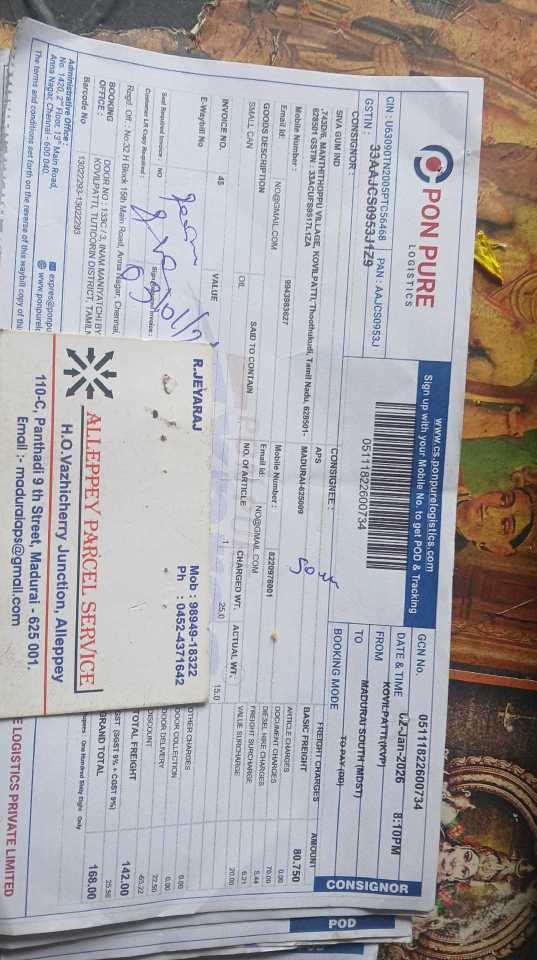 PON PURE
LOGISTICS
CIN : U63090TN2005PTC56468 PAN : AAJCS0953J
GSTIN : 33AAJCS0953J1Z9
www.cs.ponpurelogistics.com
Sign up with your Mobile No. to get POD & Tracking
05111822600734
GCN No. 05111822600734
DATE & TIME 07-Jan-2026 8:10PM
FROM KOVILPATTI(KVP)
TO MADURAI SOUTH (MDST)
BOOKING MODE TO PAY (DD)
CONSIGNOR
SIVA GUM IND
,743D/6, MANTHITHOPPU VILLAGE, KOVILPATTI, Thoothukudi, Tamil Nadu, 628501-
628501 GSTIN : 33ACUFS8517L1ZA
Mobile Number : 9943983627
Email Id: NO@GMAIL.COM
CONSIGNEE :
APS
MADURAI-625009
Mobile Number : 8220978001
Email Id: NO@GMAIL.COM
GOODS DESCRIPTION SAID TO CONTAIN NO. OF ARTICLE CHARGED WT. ACTUAL WT.
SMALL CAN OIL 1 25.0 15.0
INVOICE NO. 45 VALUE
E-Waybill No
Said Required Invoice : NO
Customer LR Copy Required :
Regd. Off. : No:32 H Block 15th Main Road, Anna Nagar, Chennai,
BOOKING OFFICE : DOOR NO : 133C / 3, INAM MANIYATCHI BY
KOVILPATTI, TUTICORIN DISTRICT, TAMIL
Barcode No 13022293-13022293
Administrative Office :
No. 1420, 2nd Floor, 13th Main Road,
Anna Nagar, Chennai - 600 040.
The terms and conditions set forth on the reverse of this waybill copy of this
FREIGHT CHARGES AMOUNT
BASIC FREIGHT 80.750
ARTICLE CHARGES 0.00
DOCUMENT CHARGES 70.00
DIESEL HIKE CHARGES 5.44
FREIGHT SURCHARGE 6.21
VALUE SURCHARGE 20.00
OTHER CHARGES 0.00
DOOR COLLECTION 0.00
DOOR DELIVERY 22.50
DISCOUNT -63.22
TOTAL FREIGHT 142.00
GST (SGST 9% + CGST 9%) 25.56
GRAND TOTAL 168.00
Rupees : One Hundred Sixty Eight Only
E LOGISTICS PRIVATE LIMITED
CONSIGNOR
POD
R.JEYARAJ
Mob : 98949-18322
Ph : 0452-4371642
ALLEPPEY PARCEL SERVICE
H.O.Vazhicherry Junction, Alleppey
110-C, Panthadi 9 th Street, Madurai - 625 001.
Email :- maduraiaps@gmail.com